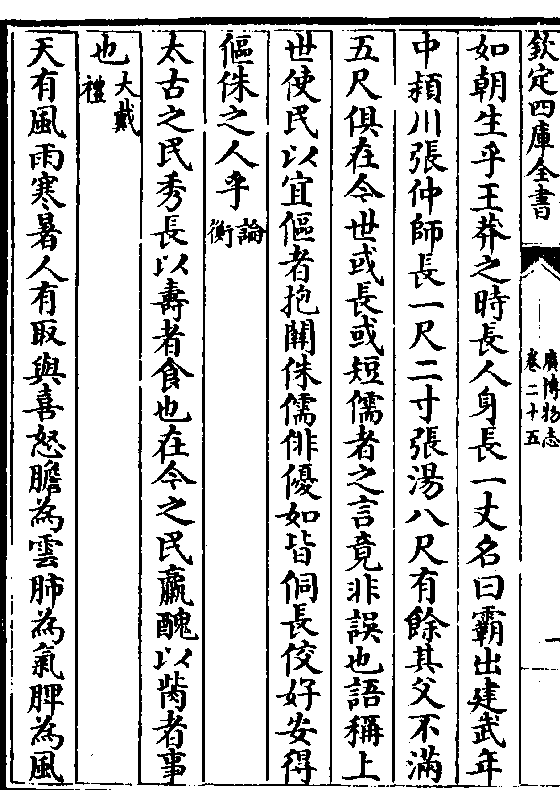 欽定四庫全書
廣博物志
卷二十五
如朝生乎王莽之時長人身長一丈名曰霸出建武年
中潁川張仲師長一尺二寸張湯八尺有餘其父不滿
五尺俱在今世或長或短儒者之言竟非誤也語稱上
世使民以宜傴者抱關侏儒俳優如皆侗長佼好安得
傴侏之人乎論衡
太古之民秀長以壽者食也在今之民羸醜以胔者事
也大戴禮
天有風雨寒暑人有取與喜怒膽為雲肺為氣脾為風